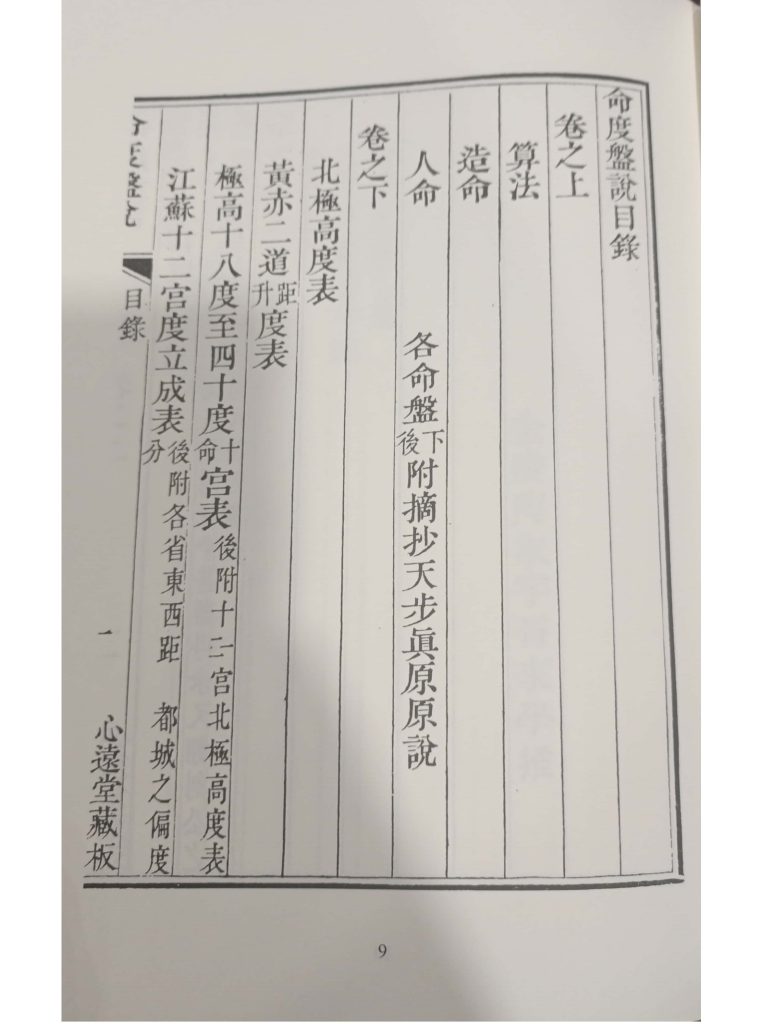 命度盤說目錄
卷之上
算法
造命
人命 各命盤下後附摘抄天步眞原原說
卷之下
北極高度表
黃赤二道距升度表
極高十八度至四十度十命宮表 後附十二宮北極高度表
江蘇十二宮度立成表 後附各省東西距都城之偏度分
命度盤說 目錄 一 心遠堂藏板
9